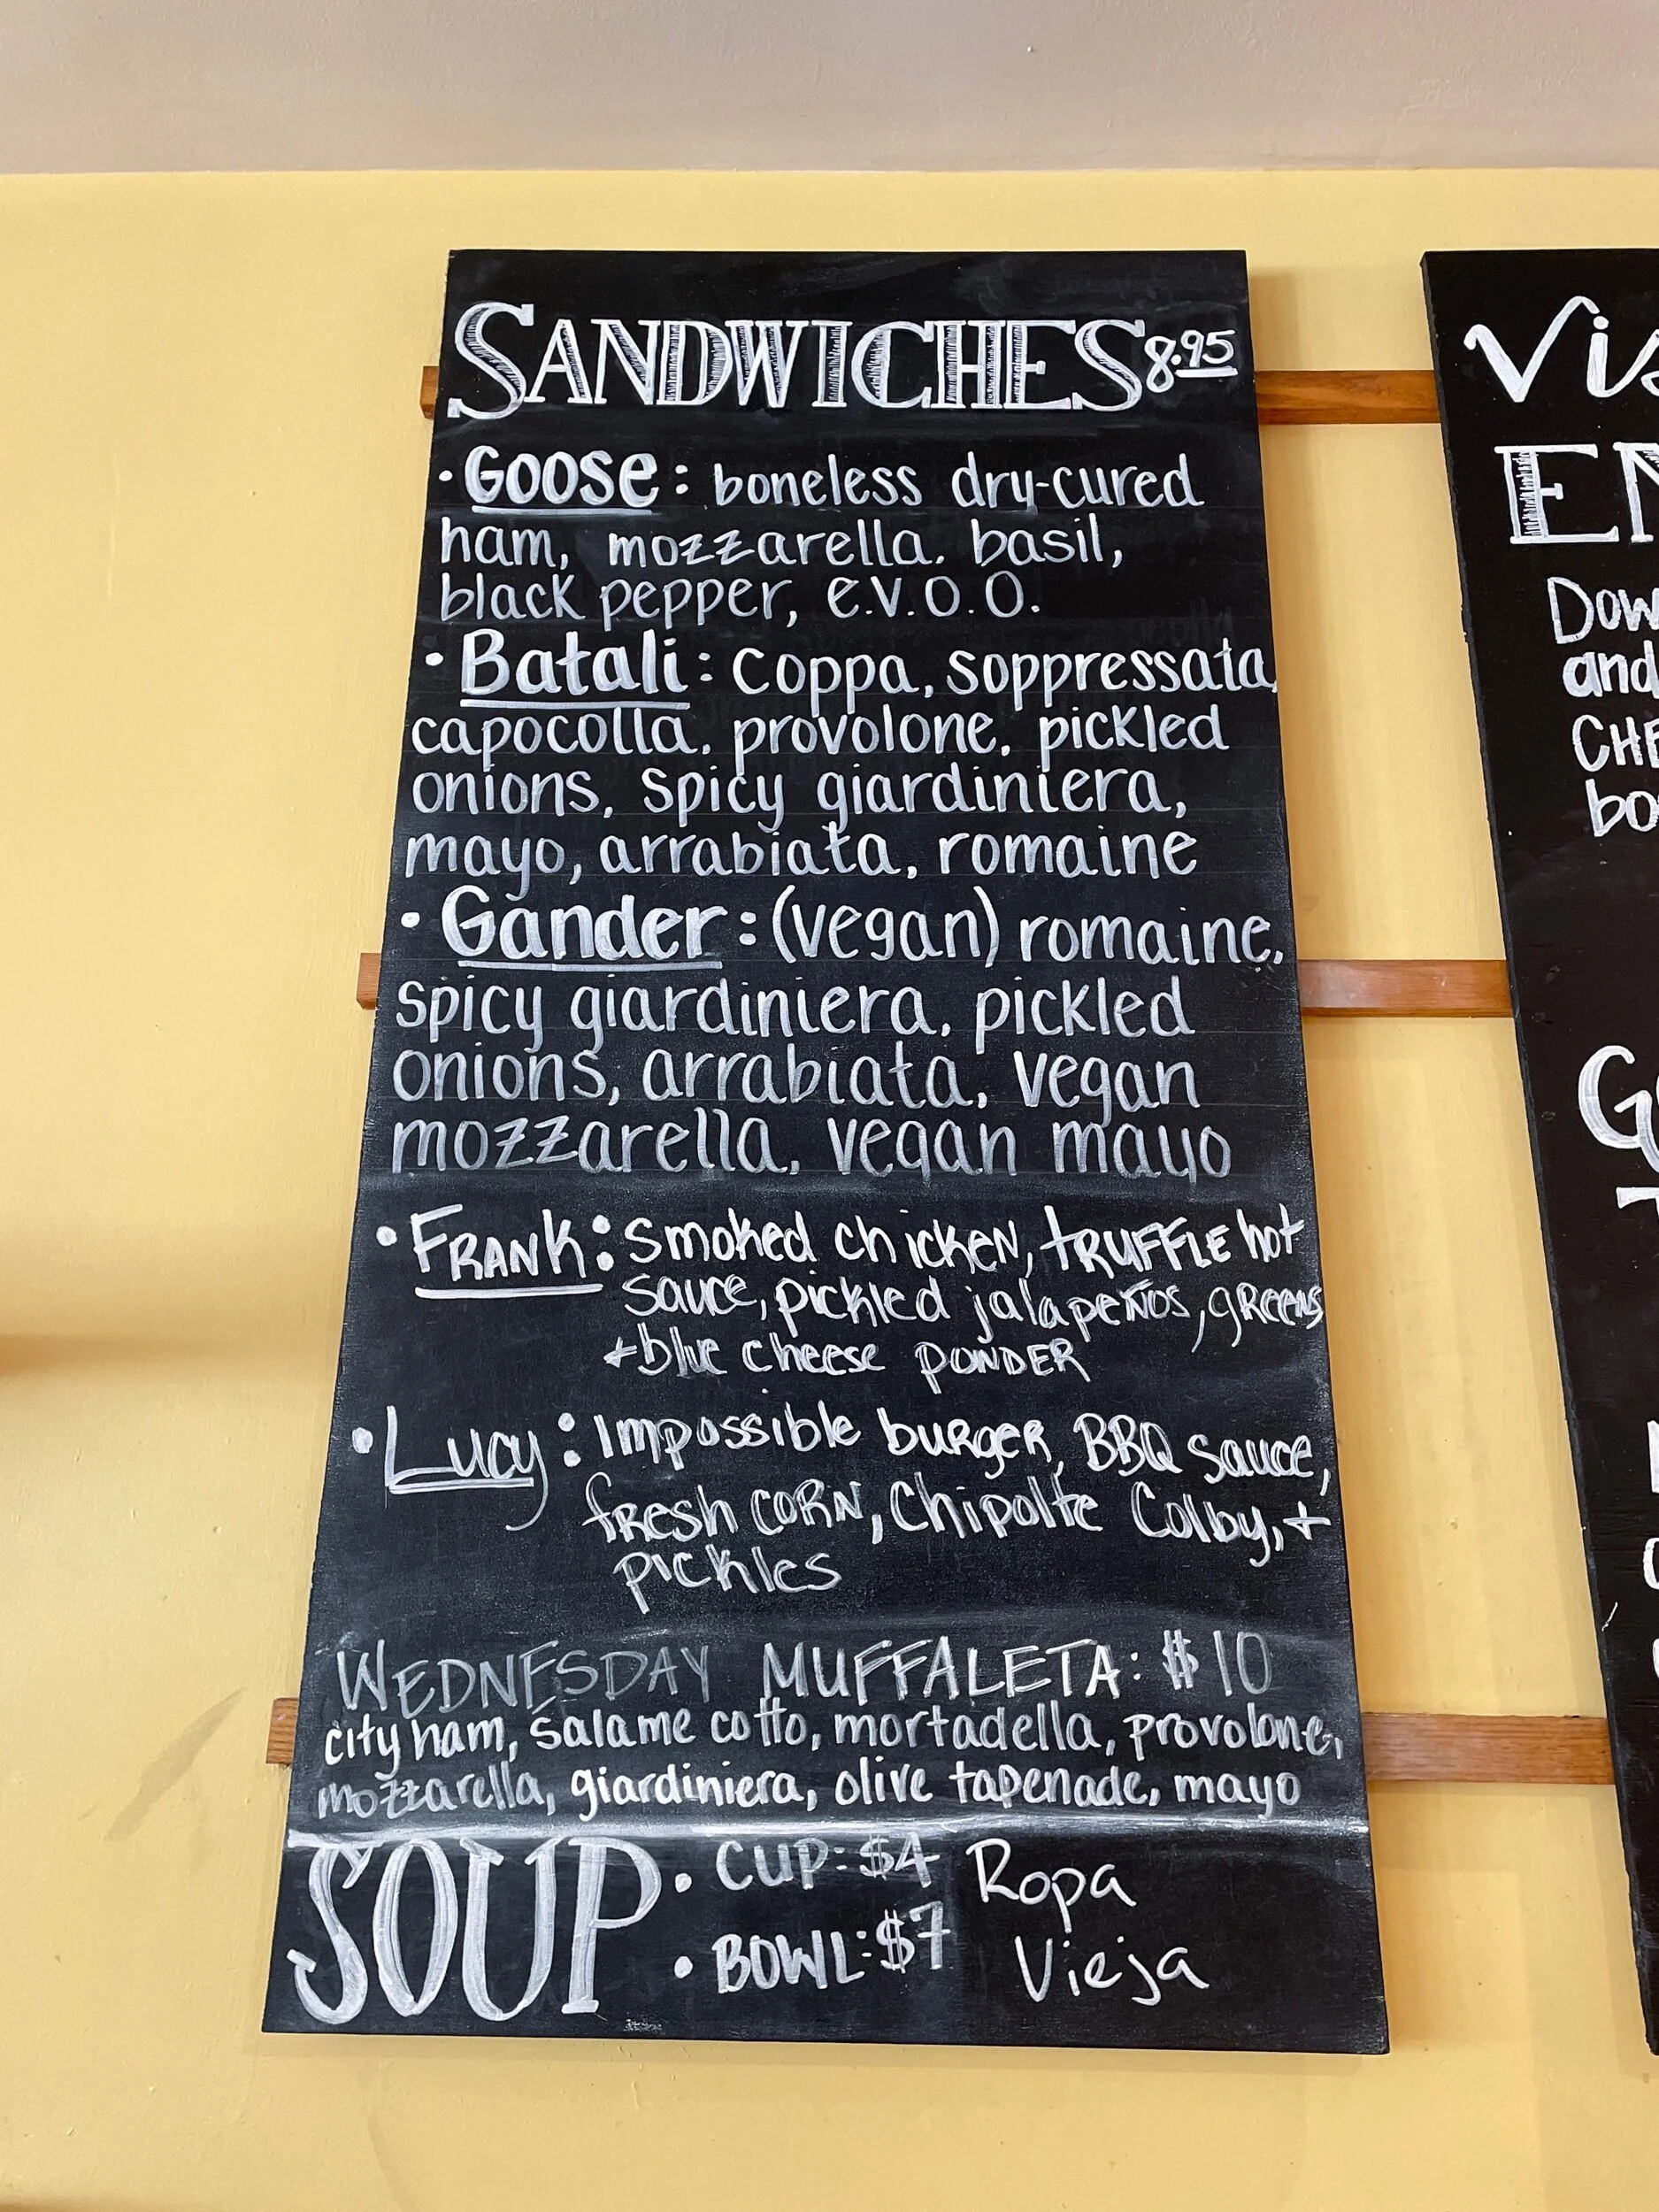 SANDWICHES 8.95
• GOOSE: boneless dry-cured
ham, mozzarella, basil,
black pepper, e.v.o.o.
• Batali: coppa, soppressata,
capocolla, provolone, pickled
onions, spicy giardiniera,
mayo, arrabiata, romaine
• Gander: (vegan) romaine,
spicy giardiniera, pickled
onions, arrabiata, vegan
mozzarella, vegan mayo
• FRANK: Smoked chicken, TRUFFLE hot
sauce, pickled jalapeños, greens
+ blue cheese POWDER
• Lucy: Impossible burger, BBQ sauce,
fresh CORN, Chipolte Colby, +
pickles
WEDNESDAY MUFFALETA: $10
city ham, salame cotto, mortadella, provolone,
mozzarella, giardiniera, olive tapenade, mayo
SOUP • CUP: $4 Ropa
• BOWL: $7 Vieja
and